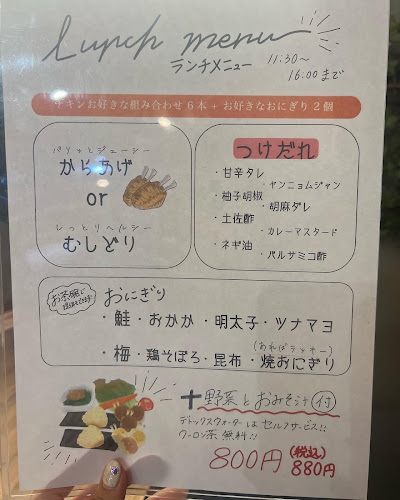 Lunch menu
ランチメニュー
11:30～
16:00まで
チキンお好きな組み合わせ6本+お好きなおにぎり2個
パリッとジューシー
からあげ
or
しっとりヘルシー
むしどり
つけだれ
・甘辛タレ
・ヤンニョムジャン
・柚子胡椒
・胡麻ダレ
・土佐酢
・カレーマスタード
・ネギ油
・バルサミコ酢
お茶碗で
おにぎり
・鮭・おかか・明太子・ツナマヨ
(あればラッキー)
・梅・鶏そぼろ・昆布・焼おにぎり
+野菜とおみそ汁付
デトックスウォーターはセルフサービス!!
ウーロン茶無料!!
800円(税込)880円